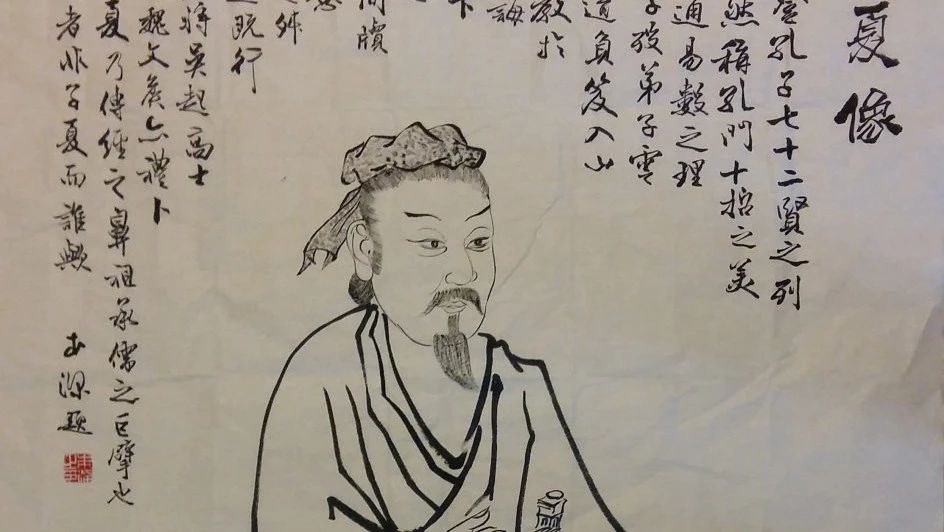 夏像
登孔子七十二賢之列
然稱孔門十哲之美
通易數之理
子殁弟子零
道負笈入山
教於
誨
卜
間牘
既行
將吳起高士
魏文侯亦禮卜
夏乃傳經之鼻祖承儒之巨擘也
者非子夏而誰歟
題